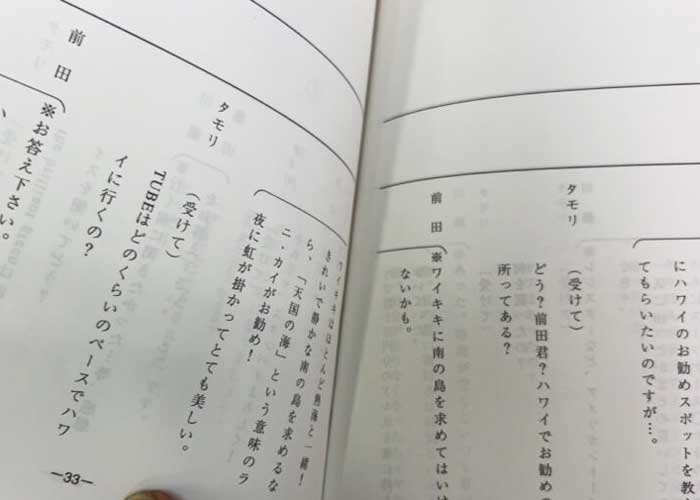 にハワイのお勧めスポットを教
てもらいたいのですが…。
タモリ
（受けて）
どう？前田君？ハワイでお勧めの
所ってある？
前田
※ワイキキに南の島を求めてはいけ
ないかも。
ワイキキはほとんど熱海と一緒！
きれいで静かな南の島を求めるな
ら、「天国の海」という意味のラ
ニ・カイがお勧め！
夜に虹が掛かってとても美しい。
タモリ
（受けて）
TUBEはどのくらいのペースでハワ
イに行くの？
前田
※お答え下さい。
—33—